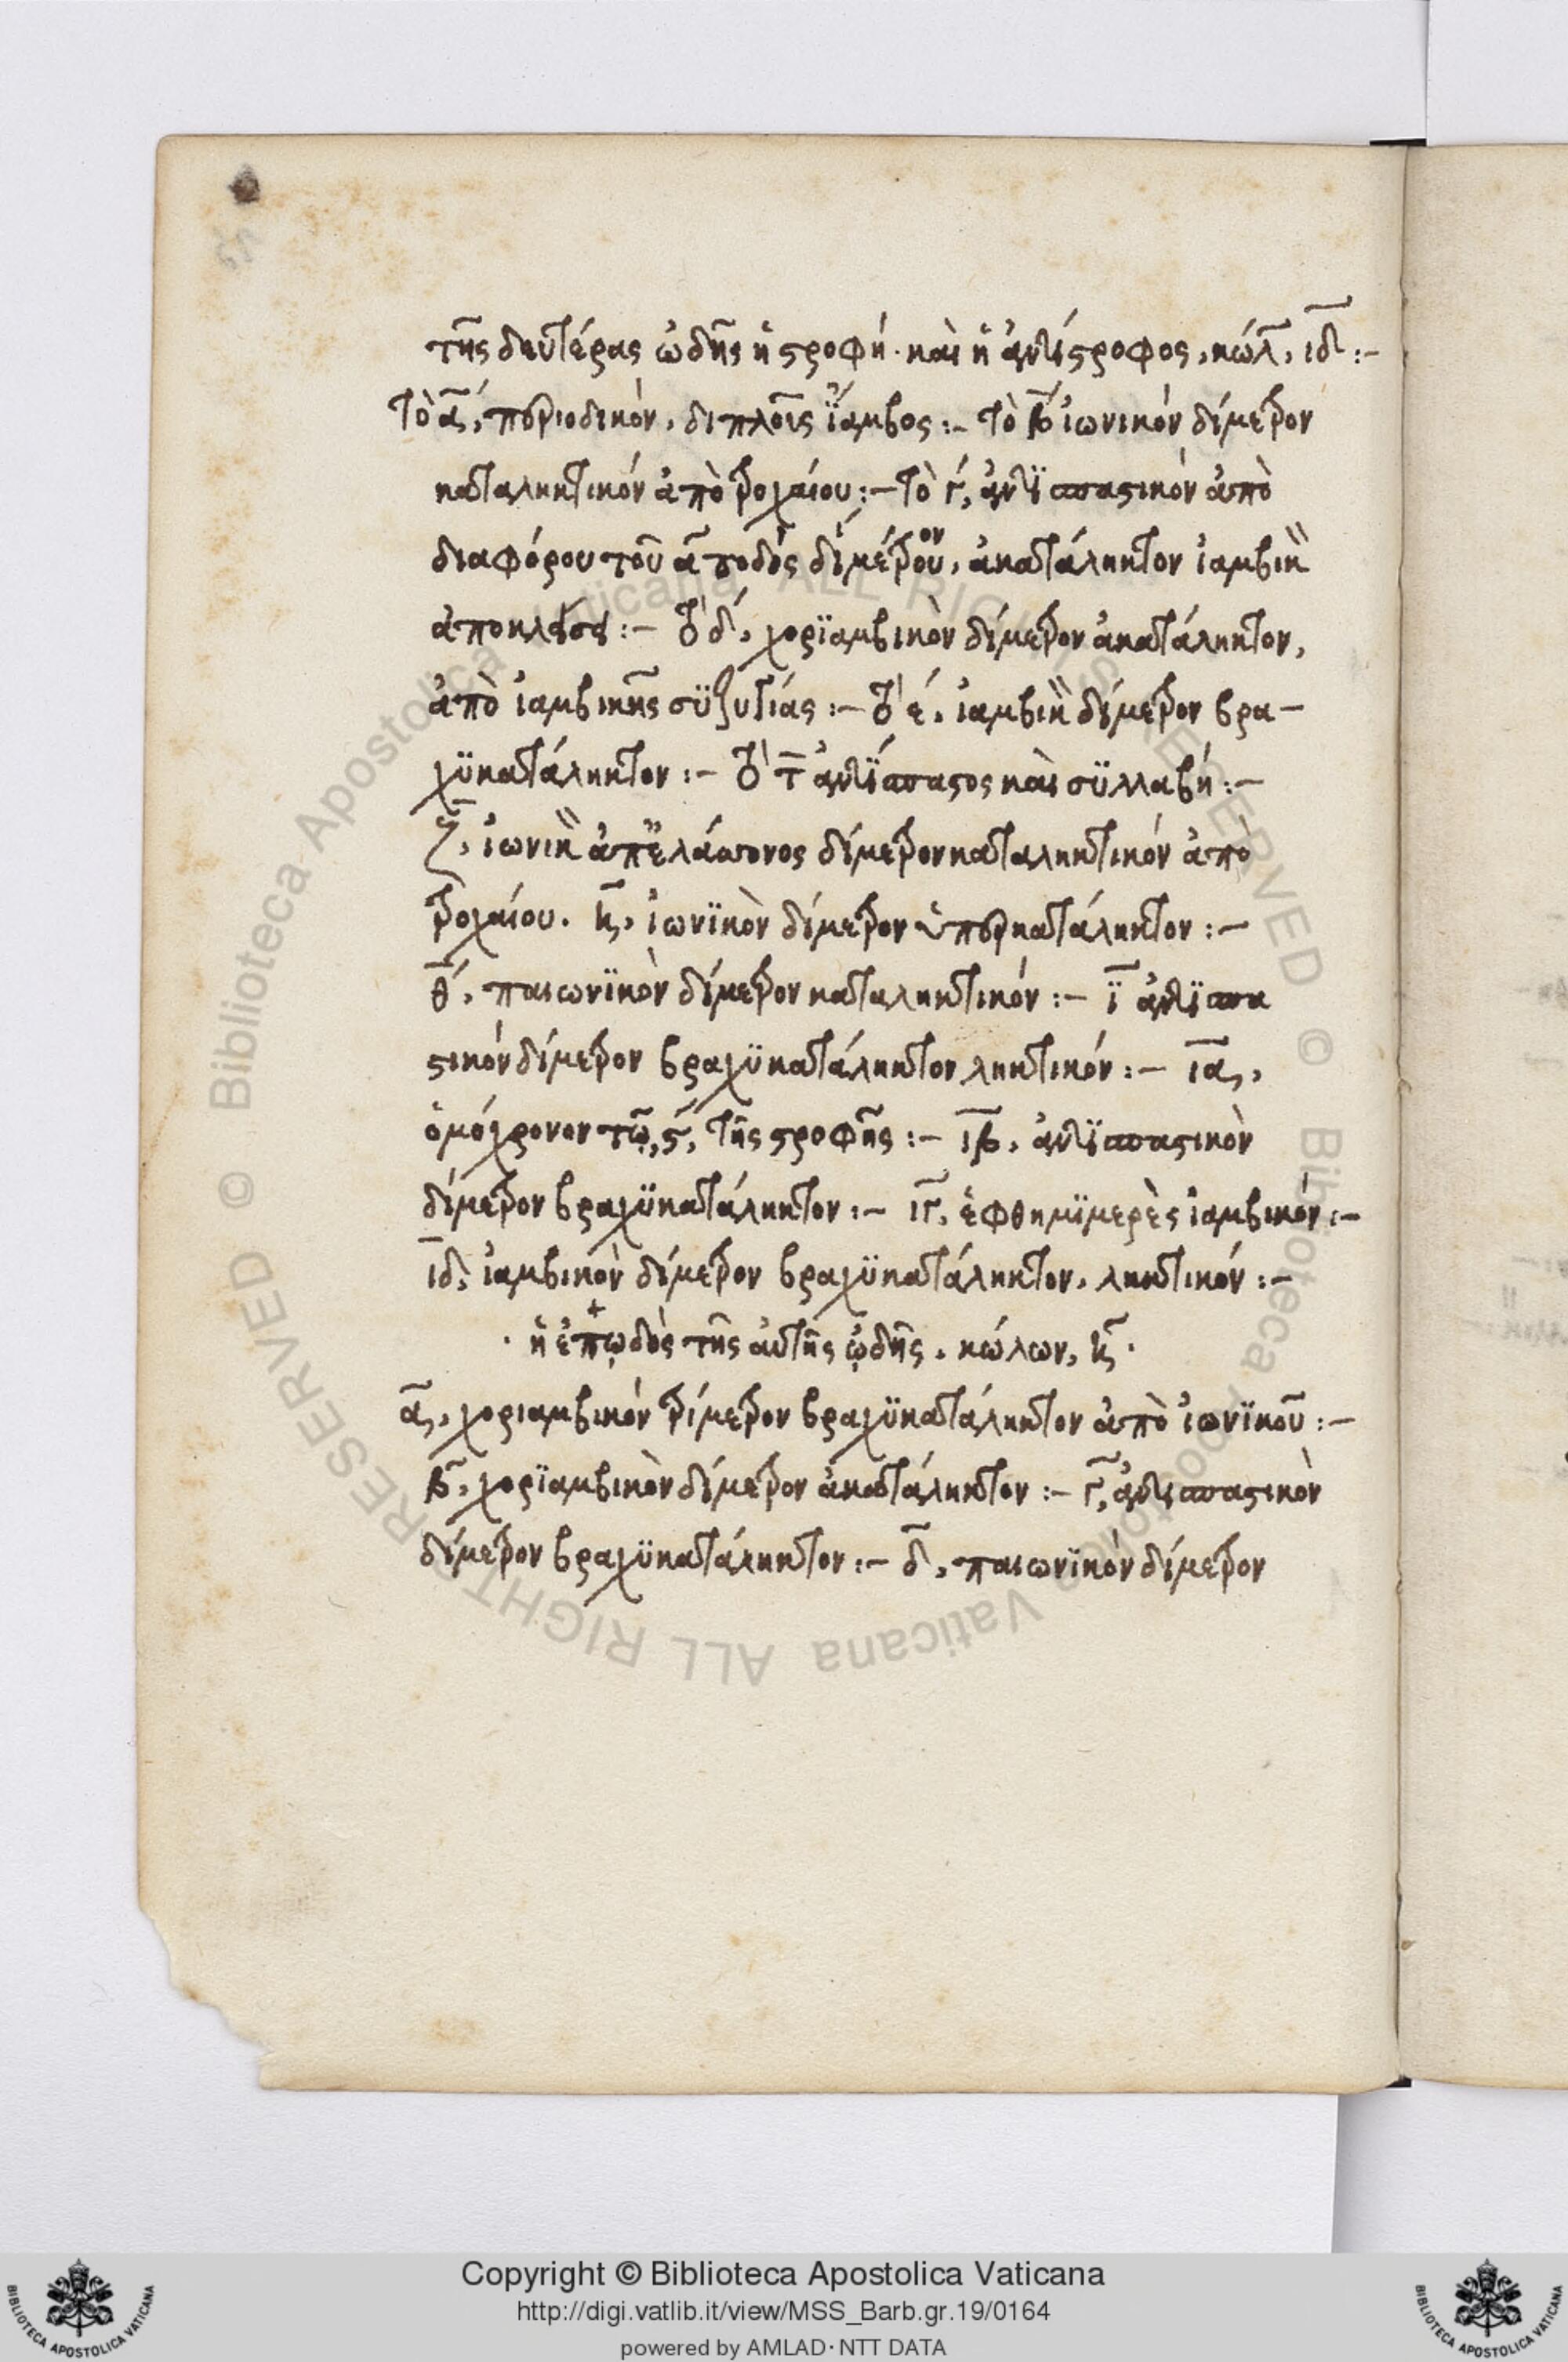 τῆς δευτέρας ὠδῆς ἡ στροφή· καὶ ἡ ἀντίστροφος, κώλ, ιδ :-
Τὸ α, περιοδικὸν, διπλοῦς ἴαμβος :- τὸ β ἰωνικὸν δίμετρον
καταληκτικόν ἀπὸ τροχαίου :- τὸ γ, ἀντϊσπαστικὸν ἀπὸ
διαφόρου τοῦ α ποδὸς διμέτρου, ἀκατάληκτον ἰαμβικ
:- τὸ δ, χορϊαμβικὸν δίμετρον ἀκατάληκτον,
ἀπὸ ἰαμβικῆς σϋζυγίας :- τὸ ε, ἰαμβικ δίμετρον βρα-
χϋκατάληκτον :- τὸ ἀντϊσπαστος καὶ σϋλλαβή :-
ζ, ἰωνικ ἀπ ἐλάσσονος δίμετρον καταληκτικόν ἀπὸ
τροχαίου. η, ἰωνϊκὸν δίμετρον ὑπερκατάληκτον :-
θ, παιωνϊκὸν δίμετρον καταληκτικόν :- ϊ ἀντϊσπα
στικὸν δίμετρον βραχϋκατάληκτον ληκτικόν :- ια,
ὁμόχρονον τῷ, ς, τῆς στροφῆς :- ιβ, ἀντϊσπαστικὸν
δίμετρον βραχϋκατάληκτον :- ιγ, ἑφθημϊμερὲς ἰαμβικόν :-
ιδ, ἰαμβικὸν δίμετρον βραχϋκατάληκτον, ληκτικόν :-
· ἡ ἐπῳδὸς τῆς αὐτῆς ᾠδῆς, κώλων, η ·
α, χοριαμβικὸν τρίμετρον βραχϋκατάληκτον ἀπὸ ἰωνϊκοῦ :-
β, χορϊαμβικὸν δίμετρον ἀκατάληκτον :- γ, ἀντισπαστικὸν
δίμετρον βραχϋκατάληκτον :- δ, παιωνϊκὸν δίμετρον
Copyright © Biblioteca Apostolica Vaticana
http://digi.vatlib.it/view/MSS_Barb.gr.19/0164
powered by AMLAD· NTT DATA